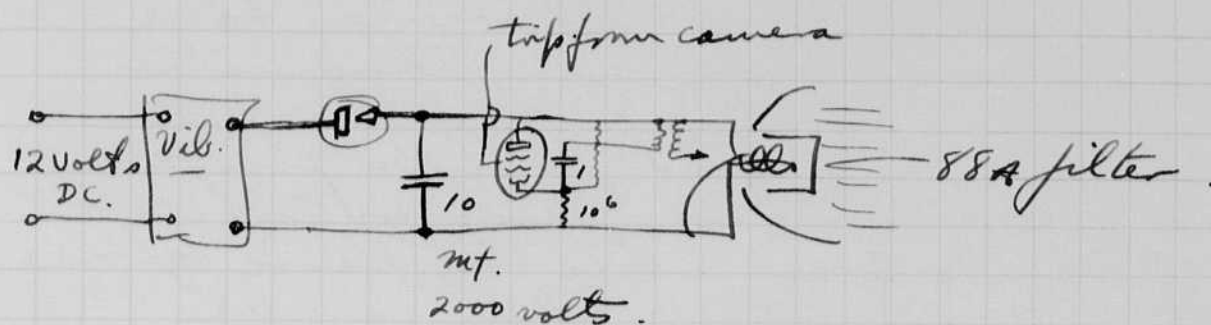 trip from camera
12 volts
DC.
Vib.
10
1
10⁶
88A filter.
mf.
2000 volts.